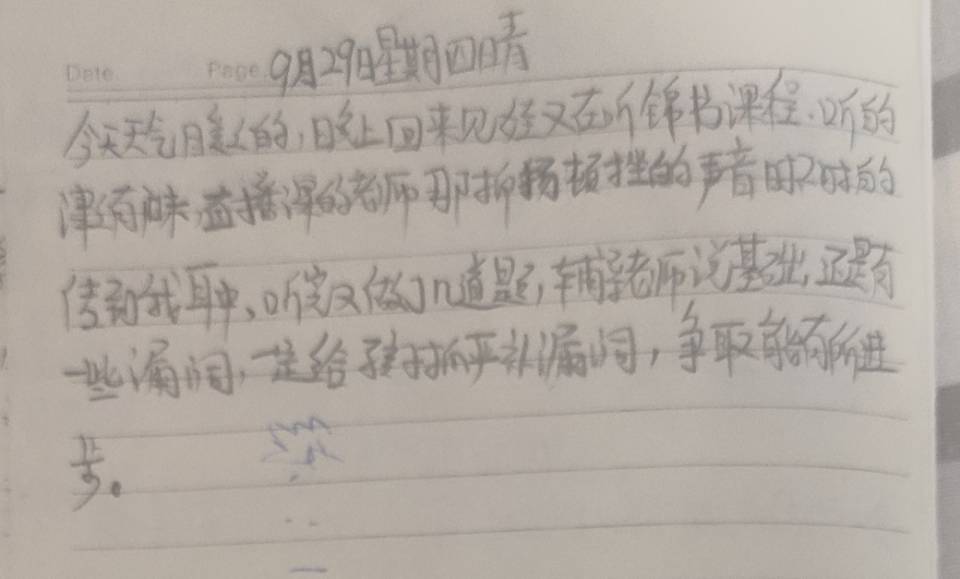 Date. Page. 9月29日星期四晴
今天天气暖暖的,晚上回来见娃又在听锦书课程.听的
津津有味,直播课的老师那抑扬顿挫的声音时不时的
传到我耳中、听完又做几道题,辅导老师说基础还是有
一些漏洞,一定给孩子抓严补漏洞,争取能有所进
步。